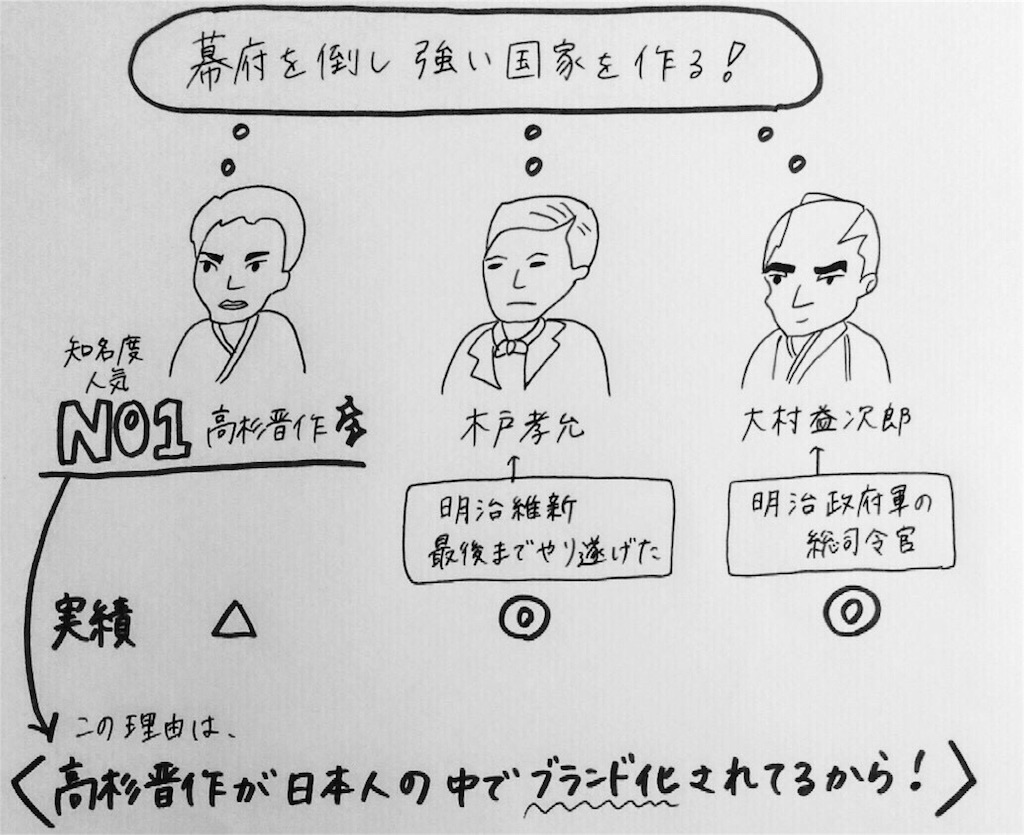 幕府を倒し強い国家を作る!
知名度
人気
NO1 高杉晋作
木戸孝允
大村益次郎
明治維新
最後までやり遂げた
明治政府軍の
総司令官
実績 △ ◎ ◎
この理由は、
〈高杉晋作が日本人の中でブランド化されてるから!〉